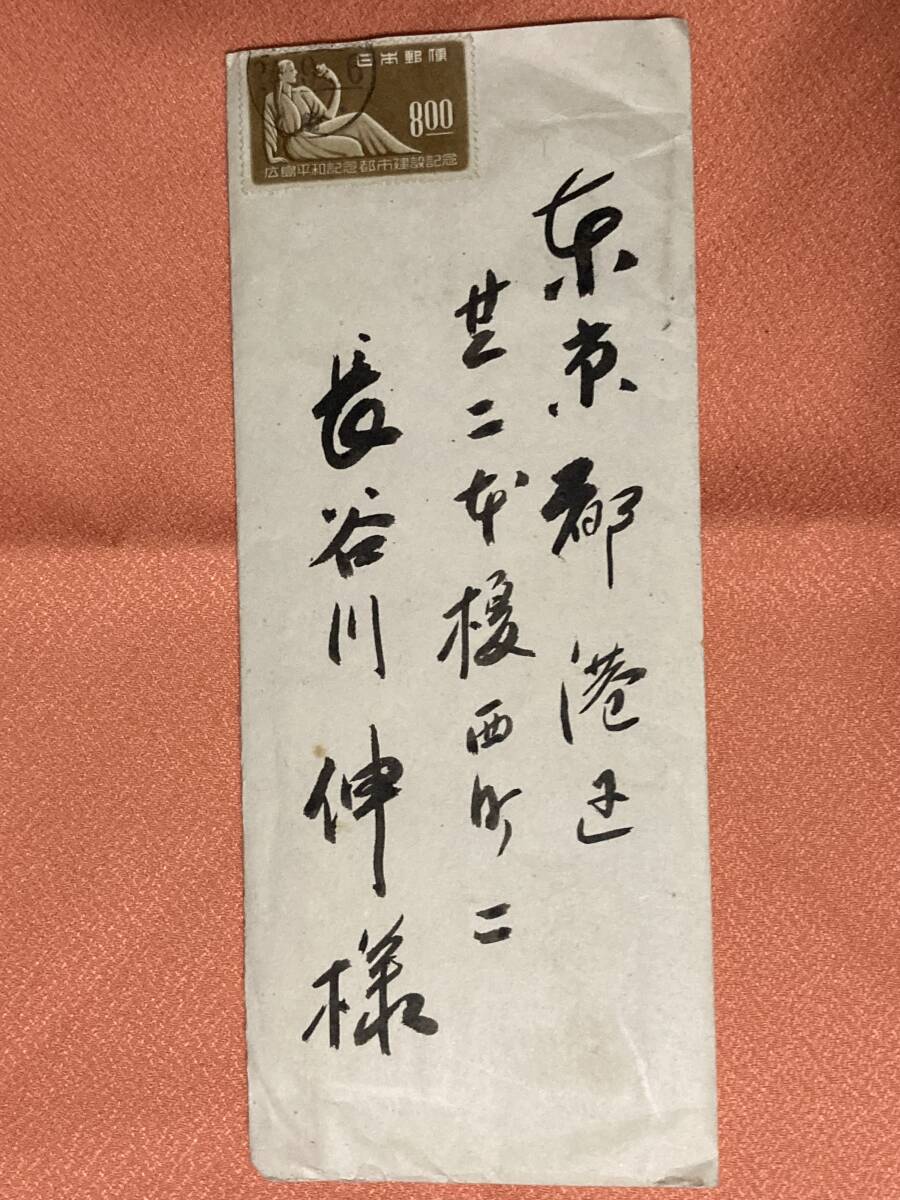 日本郵便
8.00
広島平和記念都市建設記念
東京都港区
芝二本榎西町二
長谷川伸様